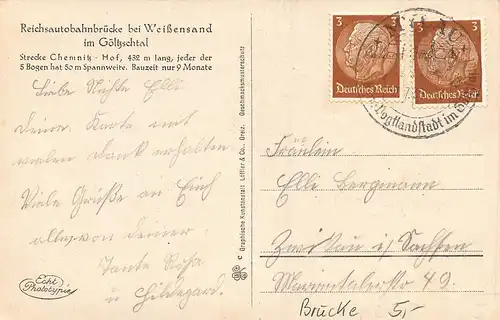 Reichsautobahnbrücke bei Weißensand
im Göltzschtal
Strecke Chemnitz - Hof, 432 m lang, jeder der
5 Bogen hat 50 m Spannweite. Bauzeit nur 9 Monate
Liebe Nichte Elli
Deine Karte mit
vielen Dank erhalten
Viele Grüße an Euch
alle, von deiner
Tante Rosa
u Hildegard.
Echt
Photographie
© Graphische Kunstanstalt Löffler & Co., Greiz. Geschmacksmusterschutz
3
3
Deutsches Reich
Deutsches Reich
Vogtlandstadt im
Fräulein
Elli Bergmann
Zwickau i/ Sachsen
49.
Brücke 5,-